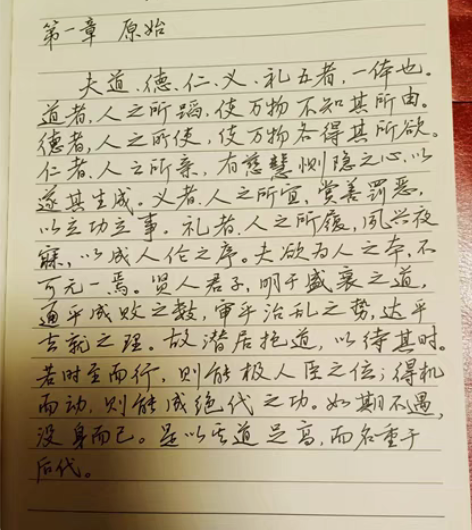 第一章 原始
夫道、德、仁、义、礼五者,一体也。
道者,人之所蹈,使万物不知其所由。
德者,人之所使,使万物各得其所欲。
仁者,人之所亲,有慈慧恻隐之心,以
遂其生成。义者,人之所宜,赏善罚恶,
以立功立事。礼者,人之所履,夙兴夜
寐,以成人伦之序。夫欲为人之本,不
可无一焉。贤人君子,明于盛衰之道,
通乎成败之数,审乎治乱之势,达乎
去就之理。故潜居抱道,以待其时。
若时至而行,则能极人臣之位;得机
而动,则能成绝代之功。如其不遇,
没身而已。是以其道足高,而名重于
后代。